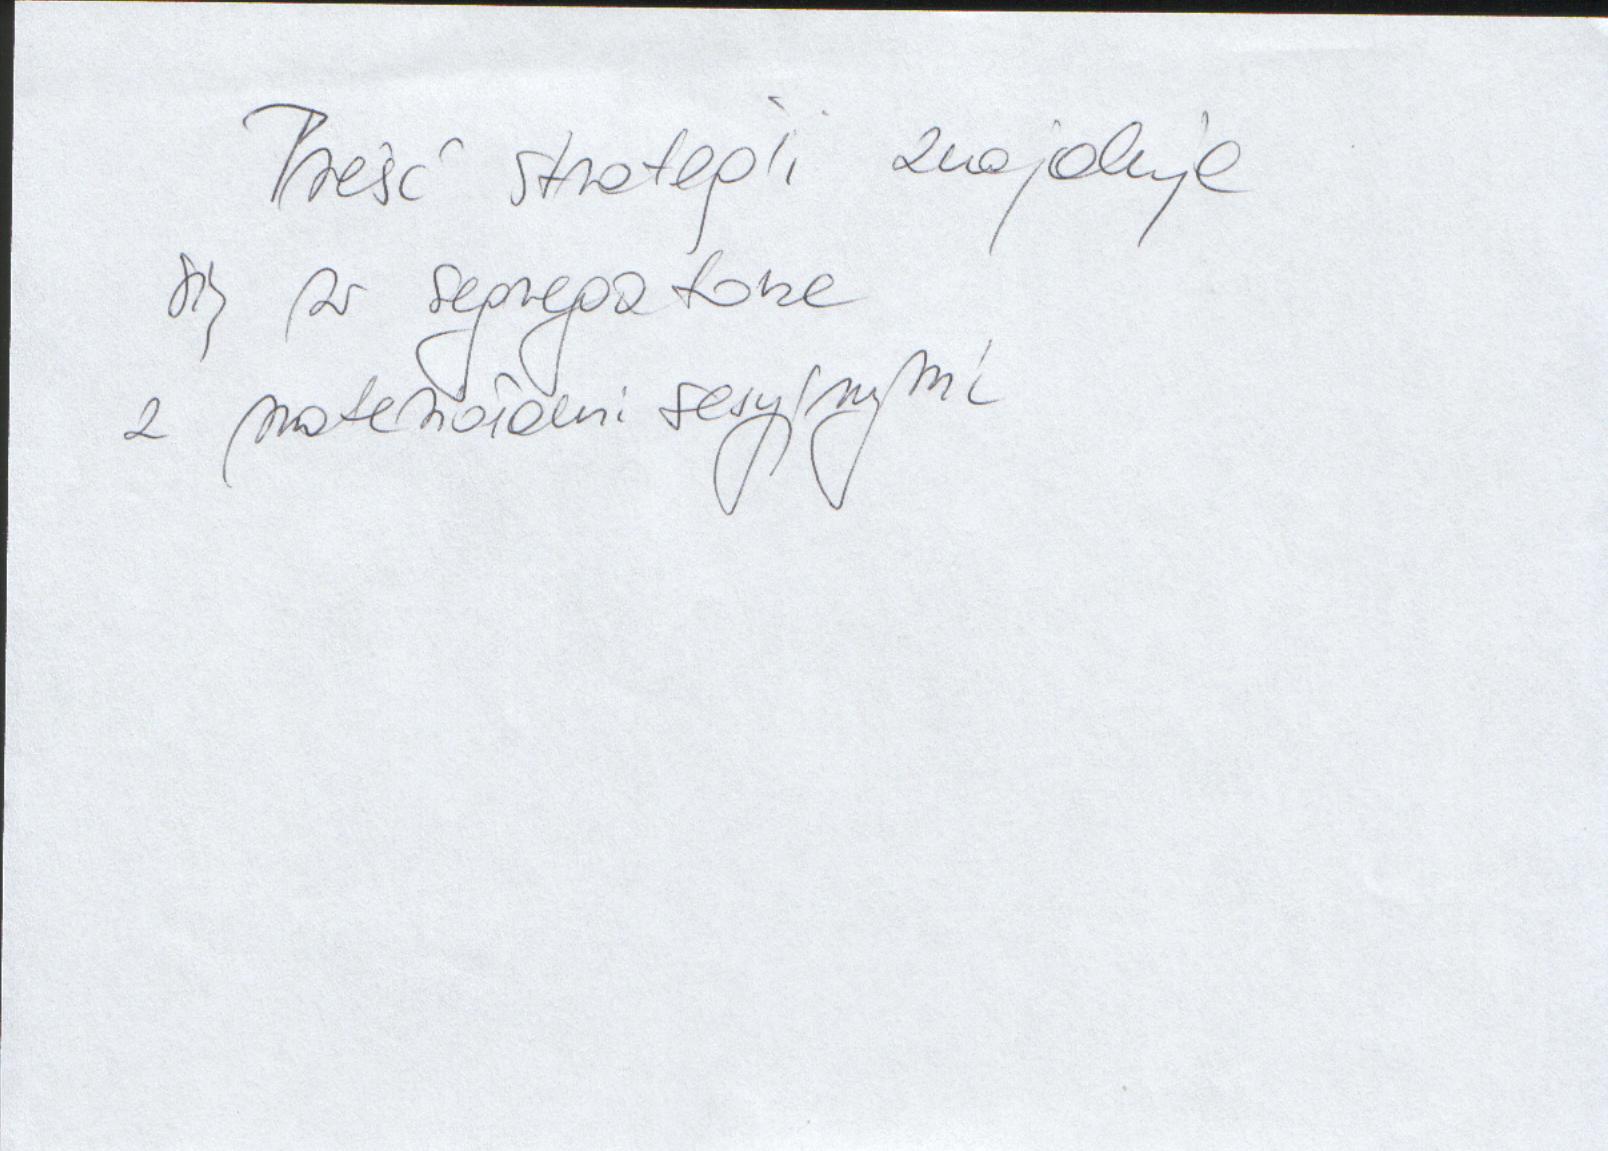 Treść strategii znajduje
się w segregatorze
z materiałami sesyjnymi